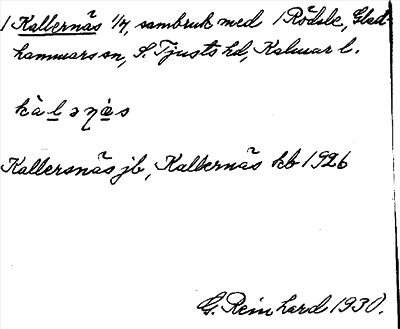 1 Kallernäs 1/4, sambruk med 1 Rödsle, Glad-
hammars sn, S. Tjusts hd, Kalmar l.
Kallersnäs jb, Kallernäs kb 1926
G. Reinhard 1930.